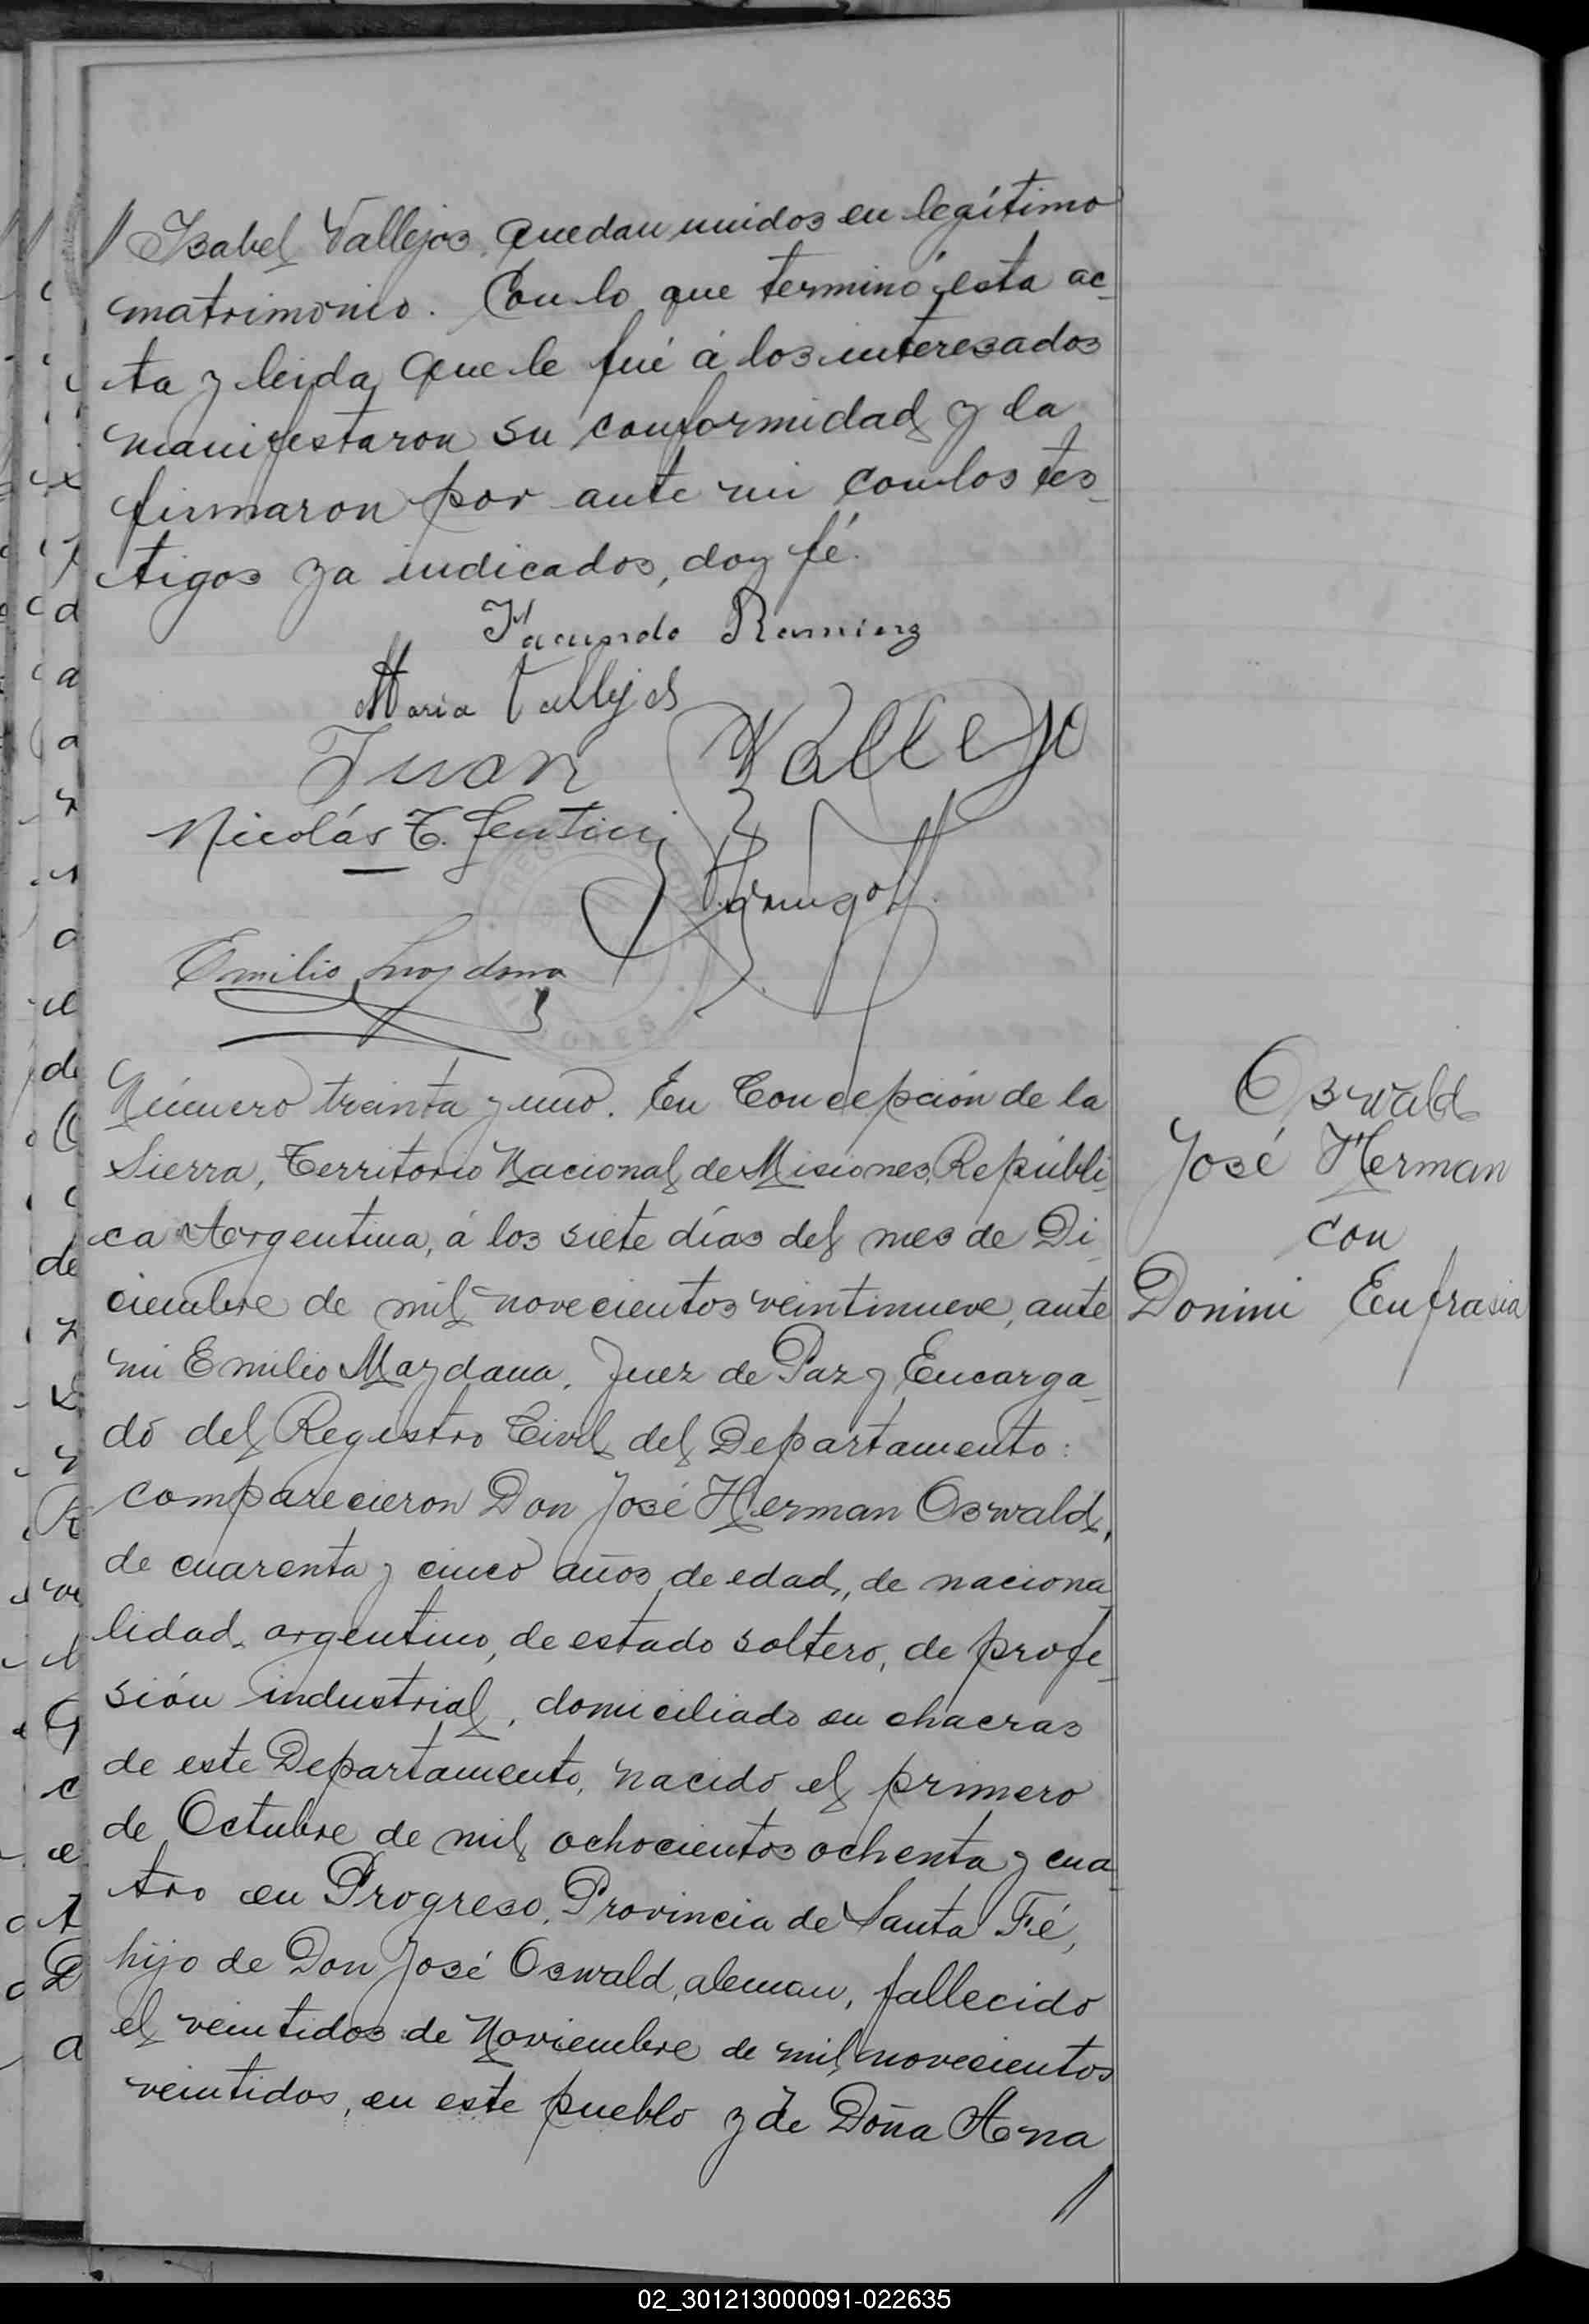 // Isabel Vallejos, quedan unidos en legítimo
matrimonio. Con lo que terminó esta ac-
ta y leida que le fué á los interesados
manifestaron su conformidad y la
firmaron por ante mi con los tes-
tigos ya indicados, doy fé.
Facundo Ramirez
Maria Vallejos
Juan Vallejo
Nicolás C.
Emilio Maydana
Número treinta y uno. En Concepción de la
Sierra, Territorio Nacional de Misiones, Repúbli-
ca Argentina, á los siete días del mes de Di-
ciembre de mil novecientos veintinueve, ante
mi Emilio Maydana, Juez de Paz y Encarga-
do del Registro Civil del Departamento:
comparecieron Don José Herman Oswald,
de cuarenta y cinco años de edad, de naciona-
lidad argentino, de estado soltero, de profe-
sión industrial, domiciliado en chacras
de este Departamento, nacido el primero
de Octubre de mil ochocientos ochenta y cua-
tro en Progreso, Provincia de Santa Fé,
hijo de Don José Oswald, aleman, fallecido
el veintidos de Noviembre de mil novecientos
veintidos, en este pueblo y de Doña Ana
//
Oswald
José Herman
con
Donini Eufrasia
02_301213000091-022635